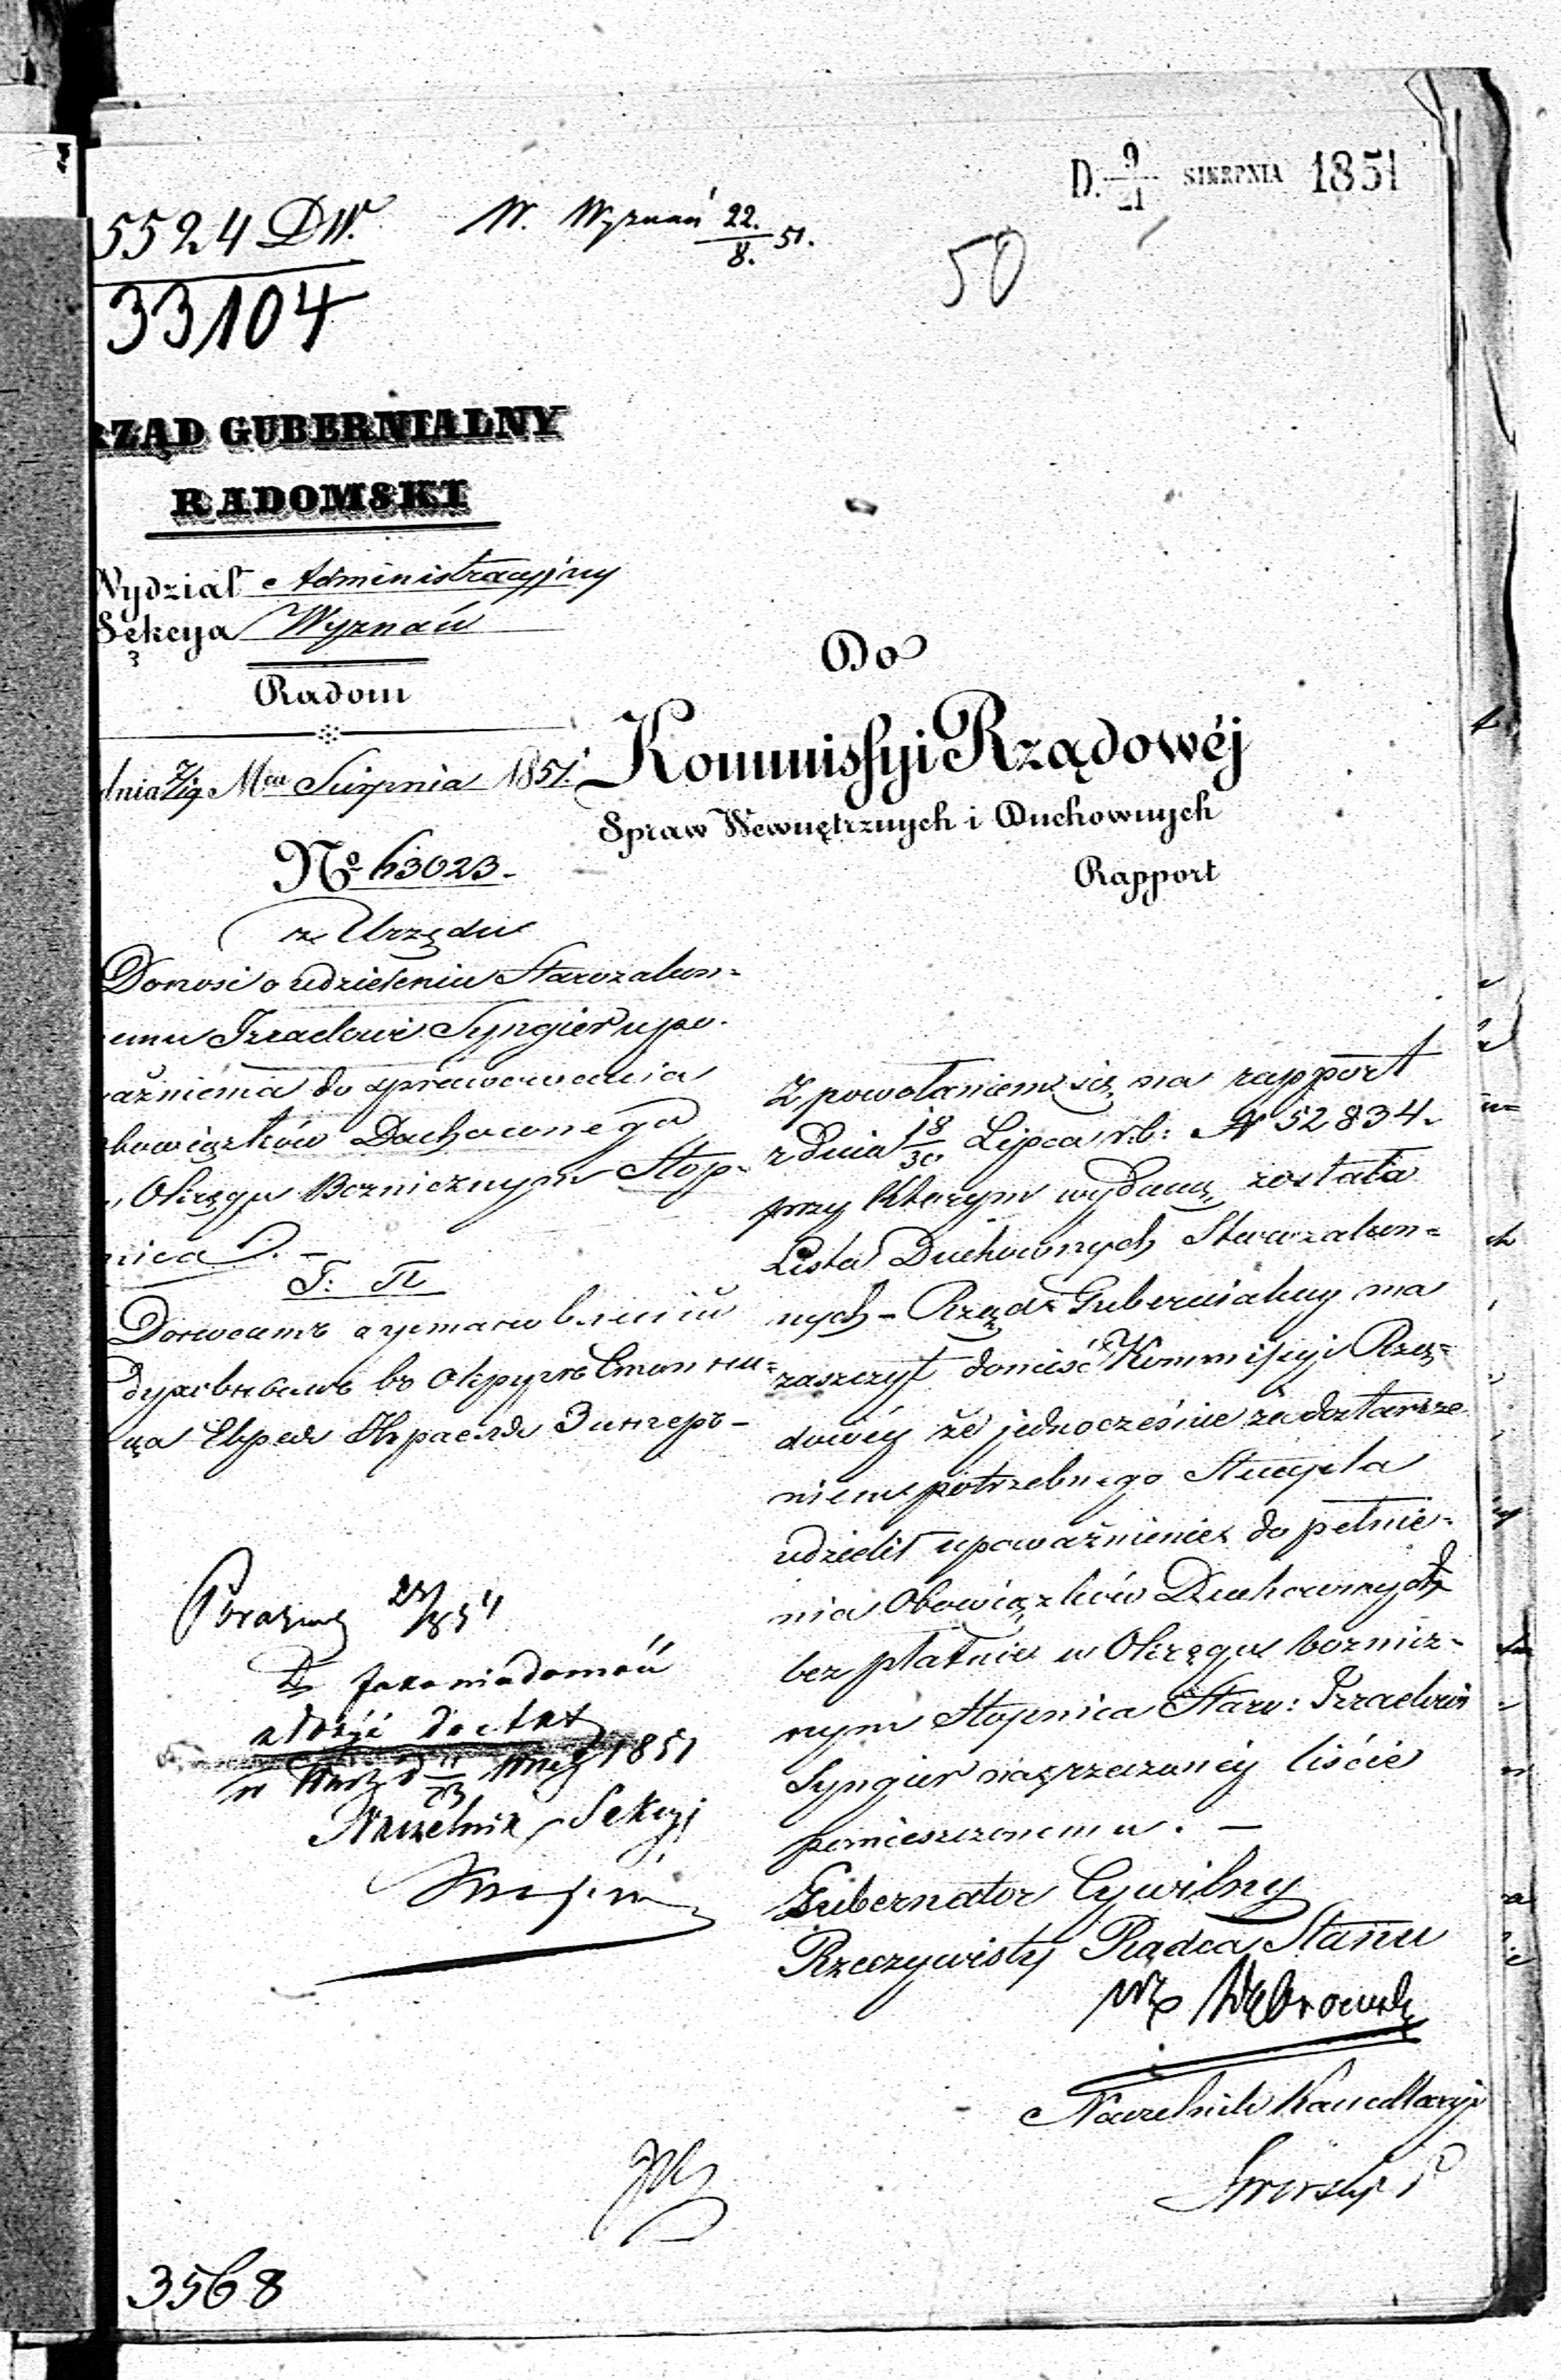 D. 9/21 SIERPNIA 1851
5524 DW.
33104
W. Wyznań 22./8. 51.
50
RZĄD GUBERNIALNY
RADOMSKI
Wydział Administracyjny
Sekcya Wyznań
Radom
dnia 7/19 Mca Sierpnia 1851.
No 63023.
z Urzędu
Donosi o udzieleniu Starozakon=
emu Izraelowi Syngier upo-
ażnienia do sprawowania
bowiązków Duchownego
Okręgu Bożnicznym Stop-
nica. —
Г: П
духовнымъ въ Округѣ Стопни=
ца Еврея Израеля Зингеръ-
Do
Kommissyi Rządowéj
Spraw Wewnętrznych i Duchownych
Rapport
Z powołaniem się na rapport
z dnia 18/30 Lipca r.b: N 52834.
przy którym wydaną została
Lista Duchownych Starozakon=
nych - Rząd Gubernialny ma
zaszczyt donieść Kommissyi Rzą=
dowéy że jednocześnie za dostarcze
niem potrzebnego Stempla
udzielił upoważnienie do pełnie=
nia Obowiązków Duchownych
bezpłatnie w Okręgu bożnicz-
nym Stopnica Staro: Izraelowi
Syngier na rzeczonéy liście
pomieszczonemu. —
Gubernator Cywilny
Rzeczywisty Radca Stanu
Naczelnik Kancellaryi
Do
złożyć do akt
1851
Naczelnik Sekcyi
3568